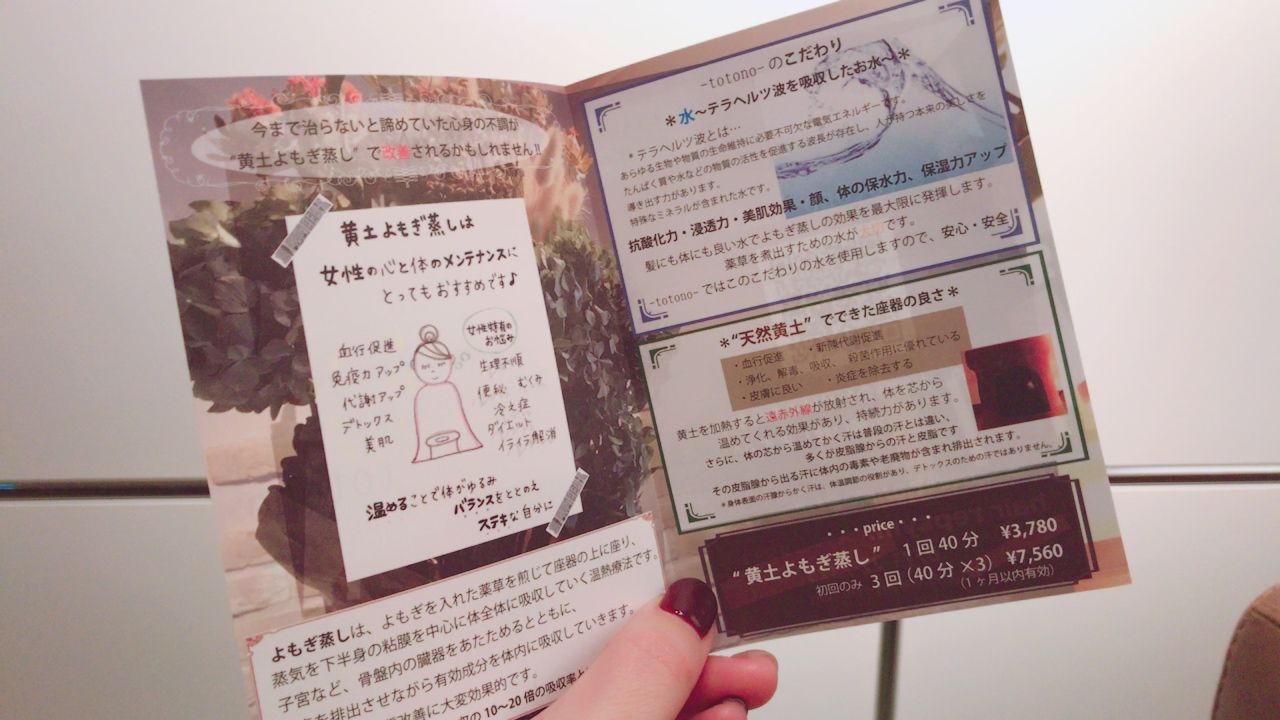 今まで治らないと諦めていた心身の不調が
"黄土よもぎ蒸し"で改善されるかもしれません!!
黄土よもぎ蒸しは
女性の心と体のメンテナンスに
とってもおすすめです♪
血行促進
免疫力アップ
代謝アップ
デトックス
美肌
女性特有の
お悩み
生理不順
便秘 むくみ
冷え症
ダイエット
イライラ解消
温めることで体がゆるみ
バランスをととのえ
ステキな自分に
よもぎ蒸しは、よもぎを入れた薬草を煎じて座器の上に座り、
蒸気を下半身の粘膜を中心に体全体に吸収していく温熱療法です。
子宮など、骨盤内の臓器をあたためるとともに、
を排出させながら有効成分を体内に吸収していきます。
改善に大変効果的です。
の10〜20倍の吸収率と
-totono-のこだわり
*水〜テラヘルツ波を吸収したお水〜*
*テラヘルツ波とは…
あらゆる生物や物質の生命維持に必要不可欠な電気エネルギーです。
たんぱく質や水などの物質の活性を促進する波長が存在し、人が持つ本来の美しさを
導き出す力があります。
特殊なミネラルが含まれた水です。
抗酸化力・浸透力・美肌効果・顔、体の保水力、保湿力アップ
髪にも体にも良い水でよもぎ蒸しの効果を最大限に発揮します。
薬草を煮出すための水が大切です。
-totono-ではこのこだわりの水を使用しますので、安心・安全
*"天然黄土"でできた座器の良さ*
・血行促進 ・新陳代謝促進
・浄化、解毒、吸収、殺菌作用に優れている
・皮膚に良い ・炎症を除去する
黄土を加熱すると遠赤外線が放射され、体を芯から
温めてくれる効果があり、持続力があります。
さらに、体の芯から温めてかく汗は普段の汗とは違い、
多くが皮脂腺からの汗と皮脂です
その皮脂腺から出る汗に体内の毒素や老廃物が含まれ排出されます。
*身体表面の汗腺からかく汗は、体温調節の役割があり、デトックスのための汗ではありません。
・・・price・・・
"黄土よもぎ蒸し" 1回40分 ¥3,780
初回のみ 3回(40分×3) ¥7,560
(1ヶ月以内有効)